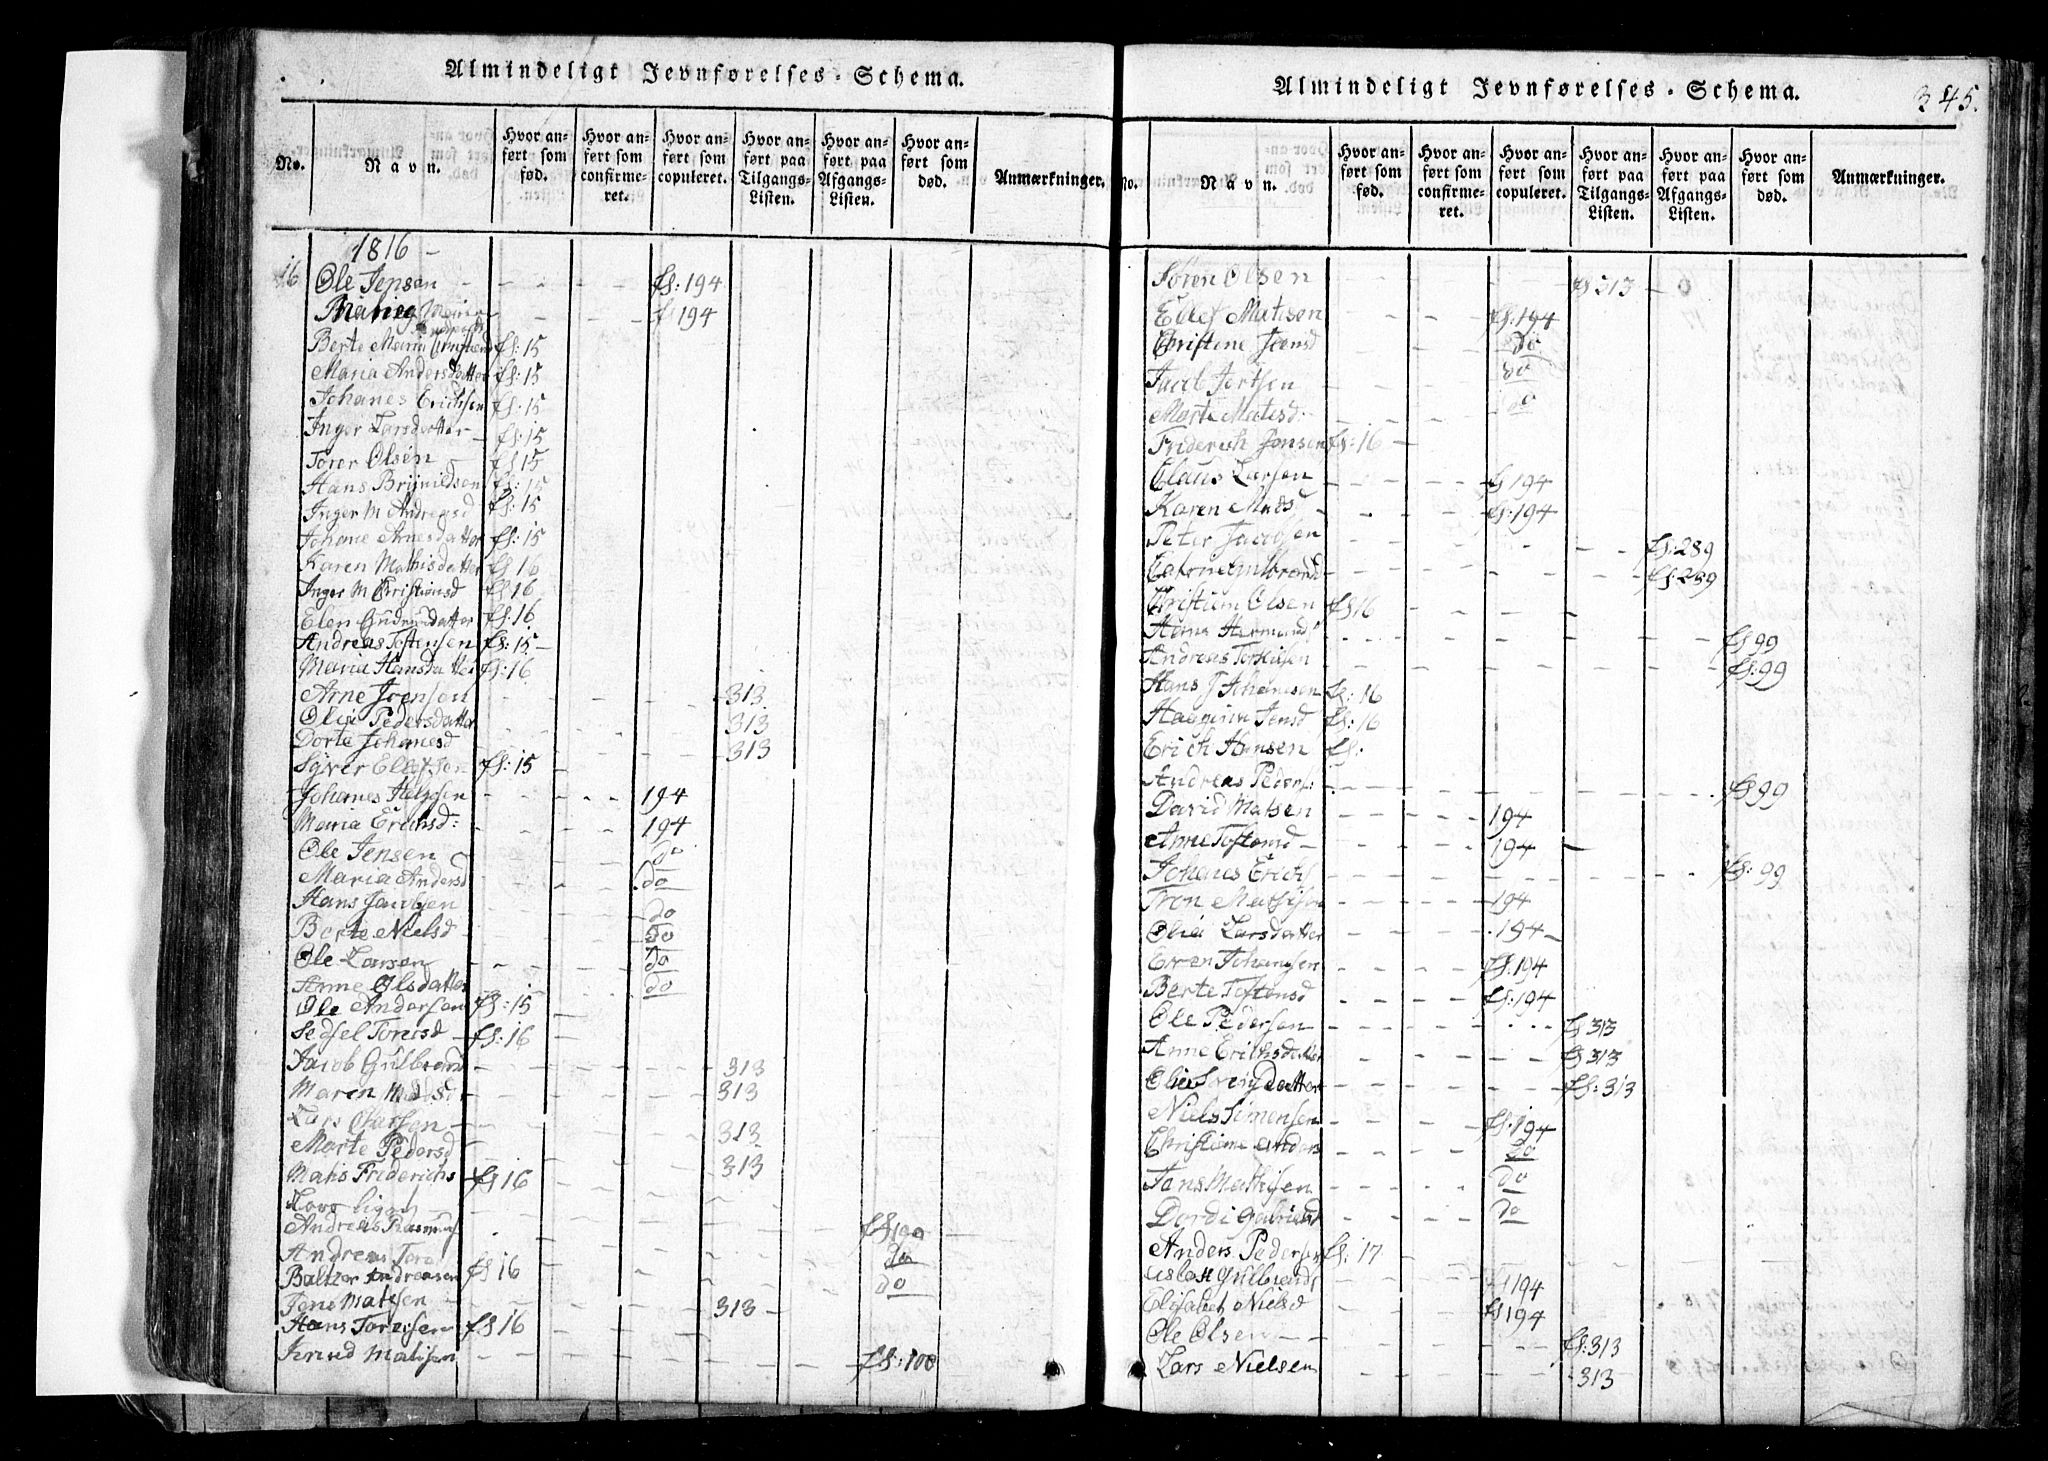 Almindeligt Jevnførelses-Schema.
No.
Navn.
Hvor anført som fød.
Hvor anført som confirmeret.
Hvor anført som copuleret.
Hvor anført paa Tilgangs-Listen.
Hvor anført paa Afgangs-Listen.
Hvor anført som død.
Anmærkninger.
1816 -
16 Ole Jensen - fs: 194
Maria - f 194
Berte Maria fs: 15
Maria Andersdatter fs: 15
Johanes Erichsen fs: 15
Inger Larsdatter - fs: 15
Torer Olsen - fs 15
Hans Brynildsen fs: 15
Inger M Andreasd fs: 15
Johane Arnesdatter fs: 15
Karen Mathisdatter fs 16
Inger M Christiansd fs 16
Elen Gudmundatter fs: 16
Andreas Tostensen fs: 15 -
Maria Hansdatter fs: 16
Arne Joensen 313
Olia Pedersdatter 313
Dorte Johanesd 313
Syver Ellefsen fs: 15
Johanes Helgesen 194
Maria Erichsd: 194
Ole Jensen do
Maria Andersd do
Hans Jacobsen do
Berte Nielsd do
Ole Larsen do
Anne Olsdatter do
Ole Andersen fs: 15
Sedsel Toresd - fs: 16
Jacob Gulbrand 313
Maren Madsd 313
Lars Olafsen 313
Marte Pedersd 313
Matis Friderichs fs 16
Andreas Rasmus fs 100
Andreas Tora do
Baltzer Andreasen fs 16 do
Jens Matesen 313
Hans Toresen fs 16
Matisen fs: 100
Almindeligt Jevnførelses-Schema.
345.
No.
Navn.
Hvor anført som fød.
Hvor anført som confirmeret.
Hvor anført som copuleret.
Hvor anført paa Tilgangs-Listen.
Hvor anført paa Afgangs-Listen.
Hvor anført som død.
Anmærkninger.
Søren Olsen fs 313 - 0
Ellef Matisen fs. 194
Christene Joensd do
Jacob Jortsen do
Marte Matisd: do
Friderich Jonsen fs: 16 -
Claus Larsen fs 194
Karen Mads fs: 194
Peter Jacobsen fs: 289
Gulbrand fs: 289
Christian Olsen fs 16
Hans Hermands fs 99
Andreas Torkilsen fs: 99
Hans J Johannesen fs: 16
Jensd fs: 16
Erich Hansen fs:
Andreas Peders: fs 99
David Matsen 194
Anne Tostensd - 194
Johanes Erichs fs: 99
Tron Mathison 194
Olia Larsdatter 194 -
Even Johannesen fs. 194
Berte Tostensd fs. 194
Ole Pedersen fs 313
Anne Erichsdatter fs 313
Olia datter fs: 313
Niels Simensen fs. 194
Christiane Anders do
Hans Mathisen do
Dordi Gabrielsd do
Anders Pedersen fs: 17 -
Aslak Gulbrands f 194
Elisabet Nielsd fs 194
Ole Olsen fs: 313
Lars Nielsen 313